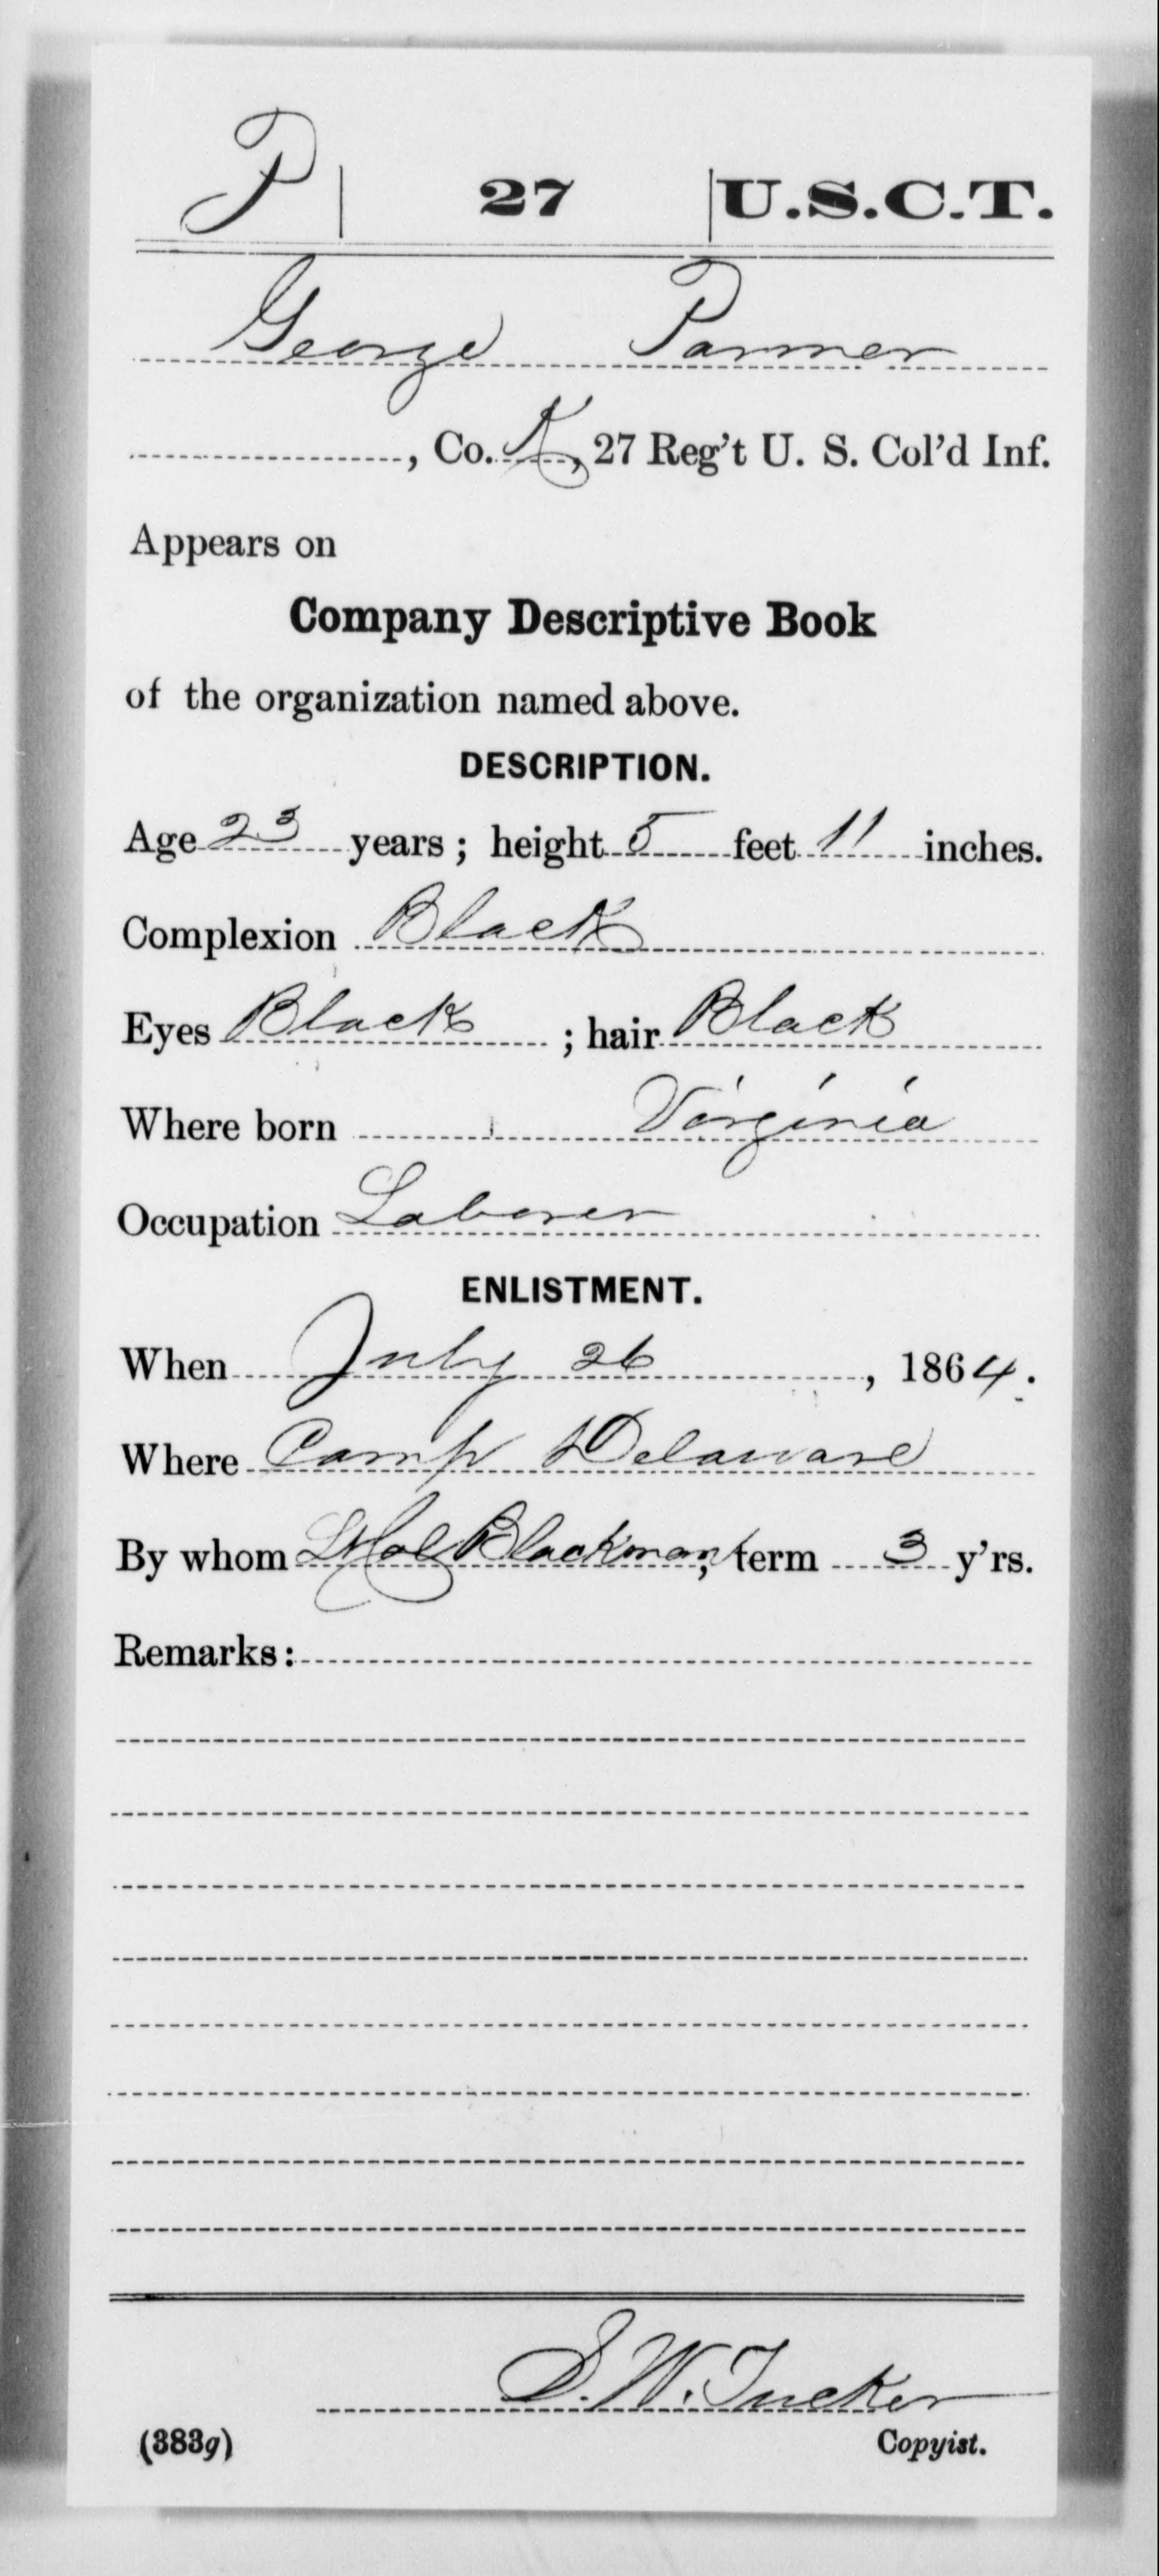 P | 27 | U.S.C.T.
George Parmer
, Co. K, 27 Reg't U. S. Col'd Inf.
Appears on
Company Descriptive Book
of the organization named above.
DESCRIPTION.
Age 23 years; height 5 feet 11 inches.
Complexion Black
Eyes Black ; hair Black
Where born Virginia
Occupation Laborer
ENLISTMENT.
When July 26, 1864.
Where Camp Delaware
By whom Lt Col Blackman, term 3 y'rs.
Remarks:
S. W. Tucker
(383g) Copyist.